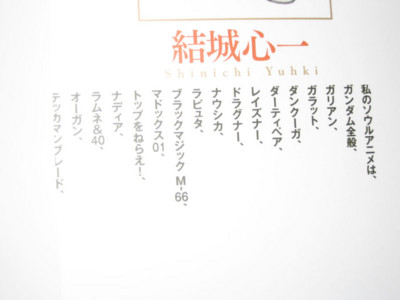 結城心一
Shinichi Yuhki
私のソウルアニメは、
ガンダム全般、
ガリアン、
ガラット、
ダンクーガ、
ダーティペア、
レイズナー、
ドラグナー、
ナウシカ、
ブラックマジックM-66、
ラピュタ、
マドックス01、
トップをねらえ!、
ナディア、
ラムネ&40、
オーガン、
テッカマンブレード、